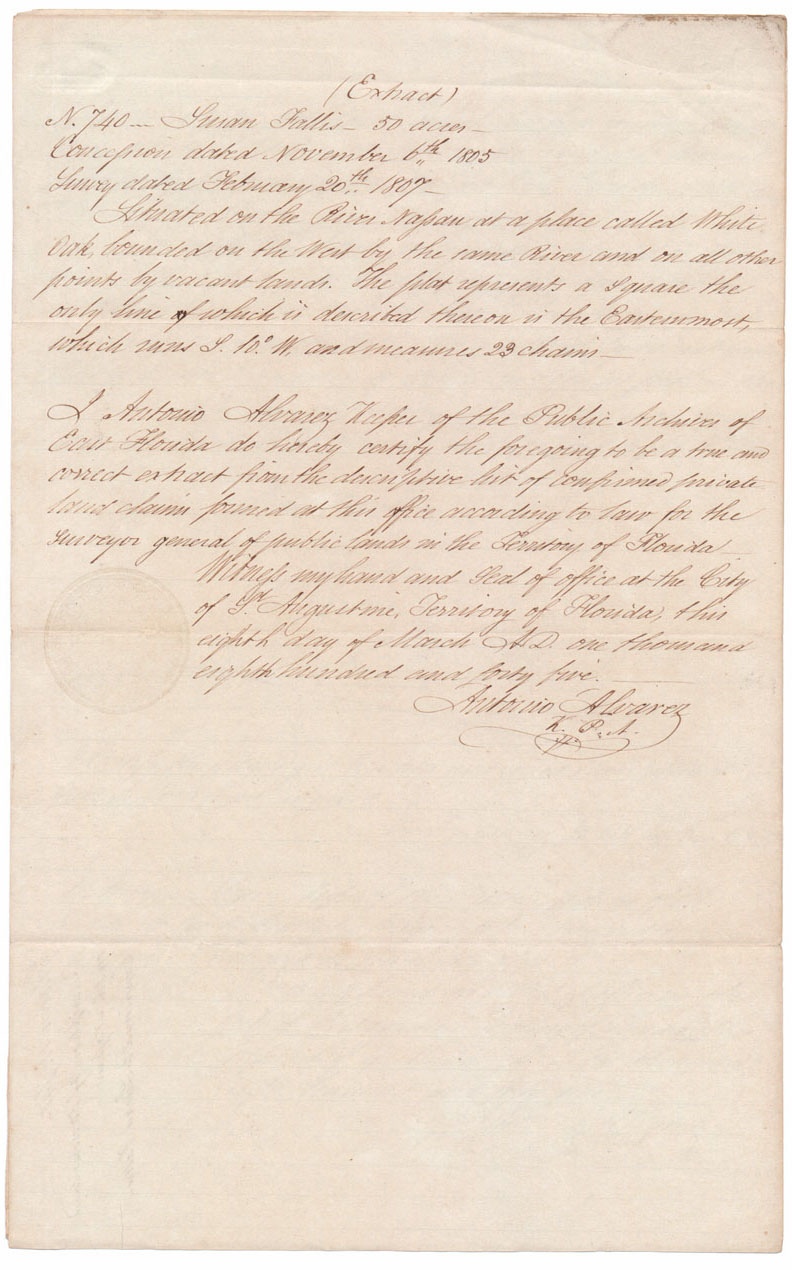 (Extract)
N. 740 — Susan Fallis — 50 acres —
Concession dated November 6th 1805
Survey dated February 20th 1807 —
Situated on the River Nassau at a place called White
Oak, bounded on the West by the same River and on all other
points by vacant lands. The plat represents a Square the
only line of which is described thereon is the Easternmost,
which runs S. 10° W. and measures 23 chains —
I Antonio Alvarez Keeper of the Public Archives of
East Florida do hereby certify the foregoing to be a true and
correct extract from the descriptive list of confirmed private
land claims formed at this office according to law for the
surveyor general of public lands in the Territory of Florida
Witness my hand and Seal of office at the City
of St. Augustine, Territory of Florida, this
eighth day of March A.D. one thousand
eighth hundred and forty five.
Antonio Alvarez
K. P. A.